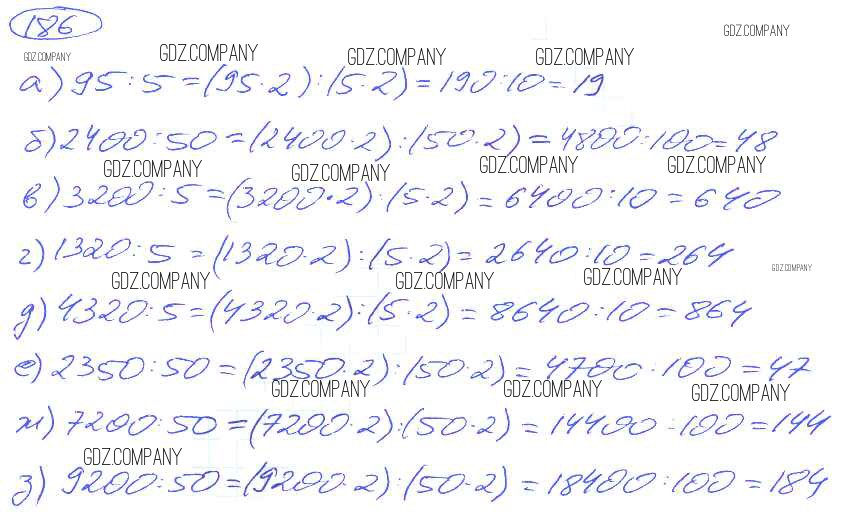 186
GDZ.COMPANY
GDZ.COMPANY GDZ.COMPANY GDZ.COMPANY GDZ.COMPANY
а) 95 : 5 = (95 · 2) : (5 · 2) = 190 : 10 = 19
б) 2400 : 50 = (2400 · 2) : (50 · 2) = 4800 : 100 = 48
GDZ.COMPANY GDZ.COMPANY GDZ.COMPANY GDZ.COMPANY
в) 3200 : 5 = (3200 · 2) : (5 · 2) = 6400 : 10 = 640
г) 1320 : 5 = (1320 · 2) : (5 · 2) = 2640 : 10 = 264
GDZ.COMPANY GDZ.COMPANY GDZ.COMPANY GDZ.COMPANY
д) 4320 : 5 = (4320 · 2) : (5 · 2) = 8640 : 10 = 864
е) 2350 : 50 = (2350 · 2) : (50 · 2) = 4700 : 100 = 47
GDZ.COMPANY GDZ.COMPANY GDZ.COMPANY
ж) 7200 : 50 = (7200 · 2) : (50 · 2) = 14400 : 100 = 144
GDZ.COMPANY
з) 9200 : 50 = (9200 · 2) : (50 · 2) = 18400 : 100 = 184